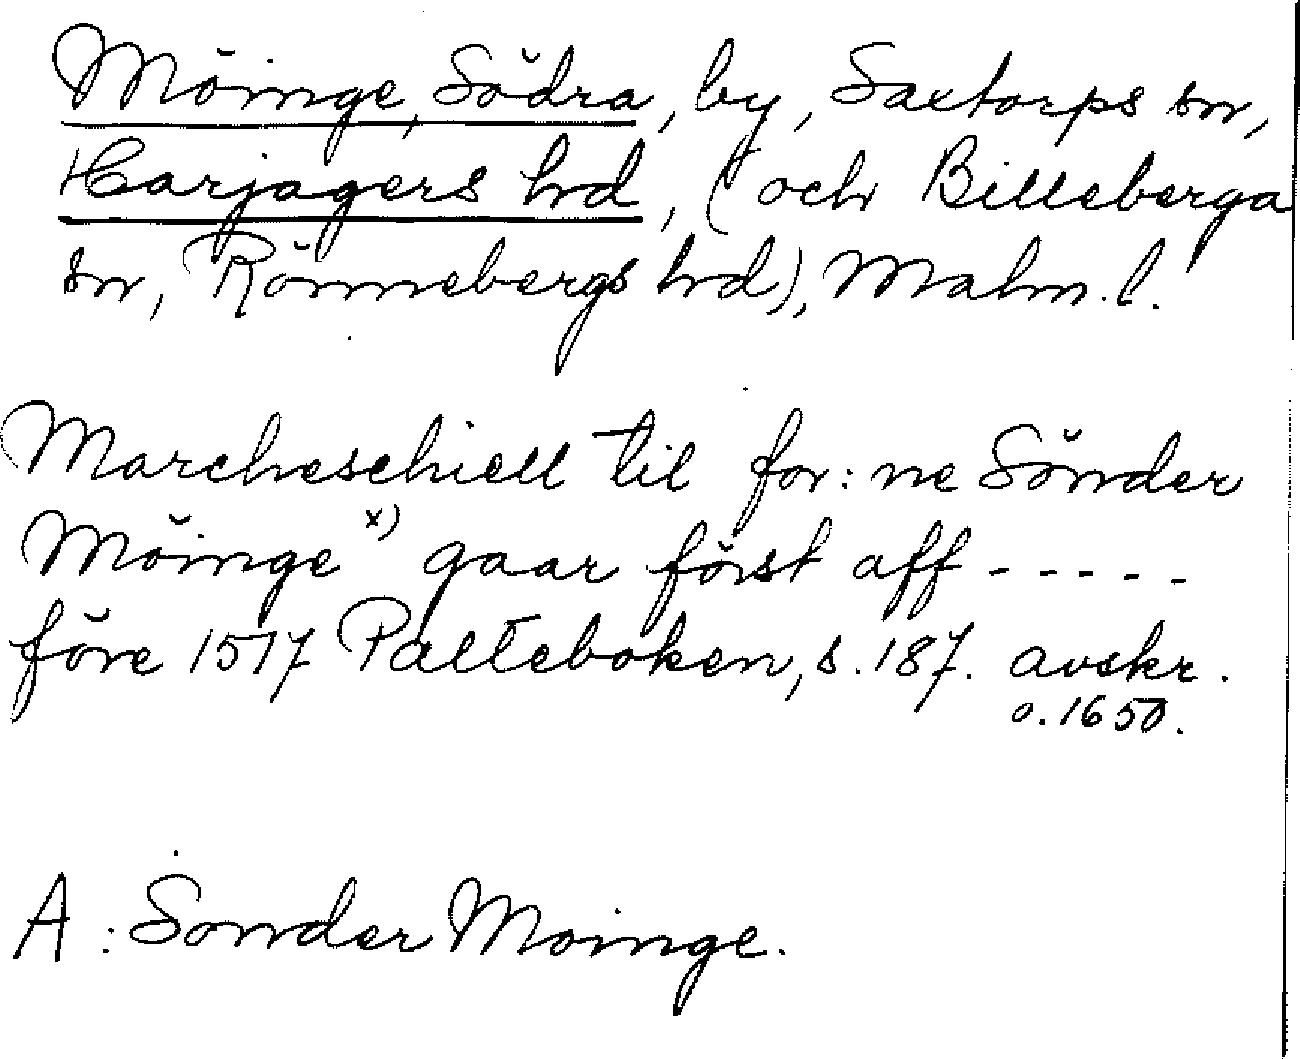 Möinge, Södra, by, Saxtorps sn,
Harjagers hrd, (och Billeberga
sn, Rönnebergs hrd), Malm. l.
Marcheschiell til for: ne Sönder
Möinge x) gaar först aff - - - - -
före 1517 Palteboken, s. 187. avskr.
o. 1650.
A: Sonder Moinge.